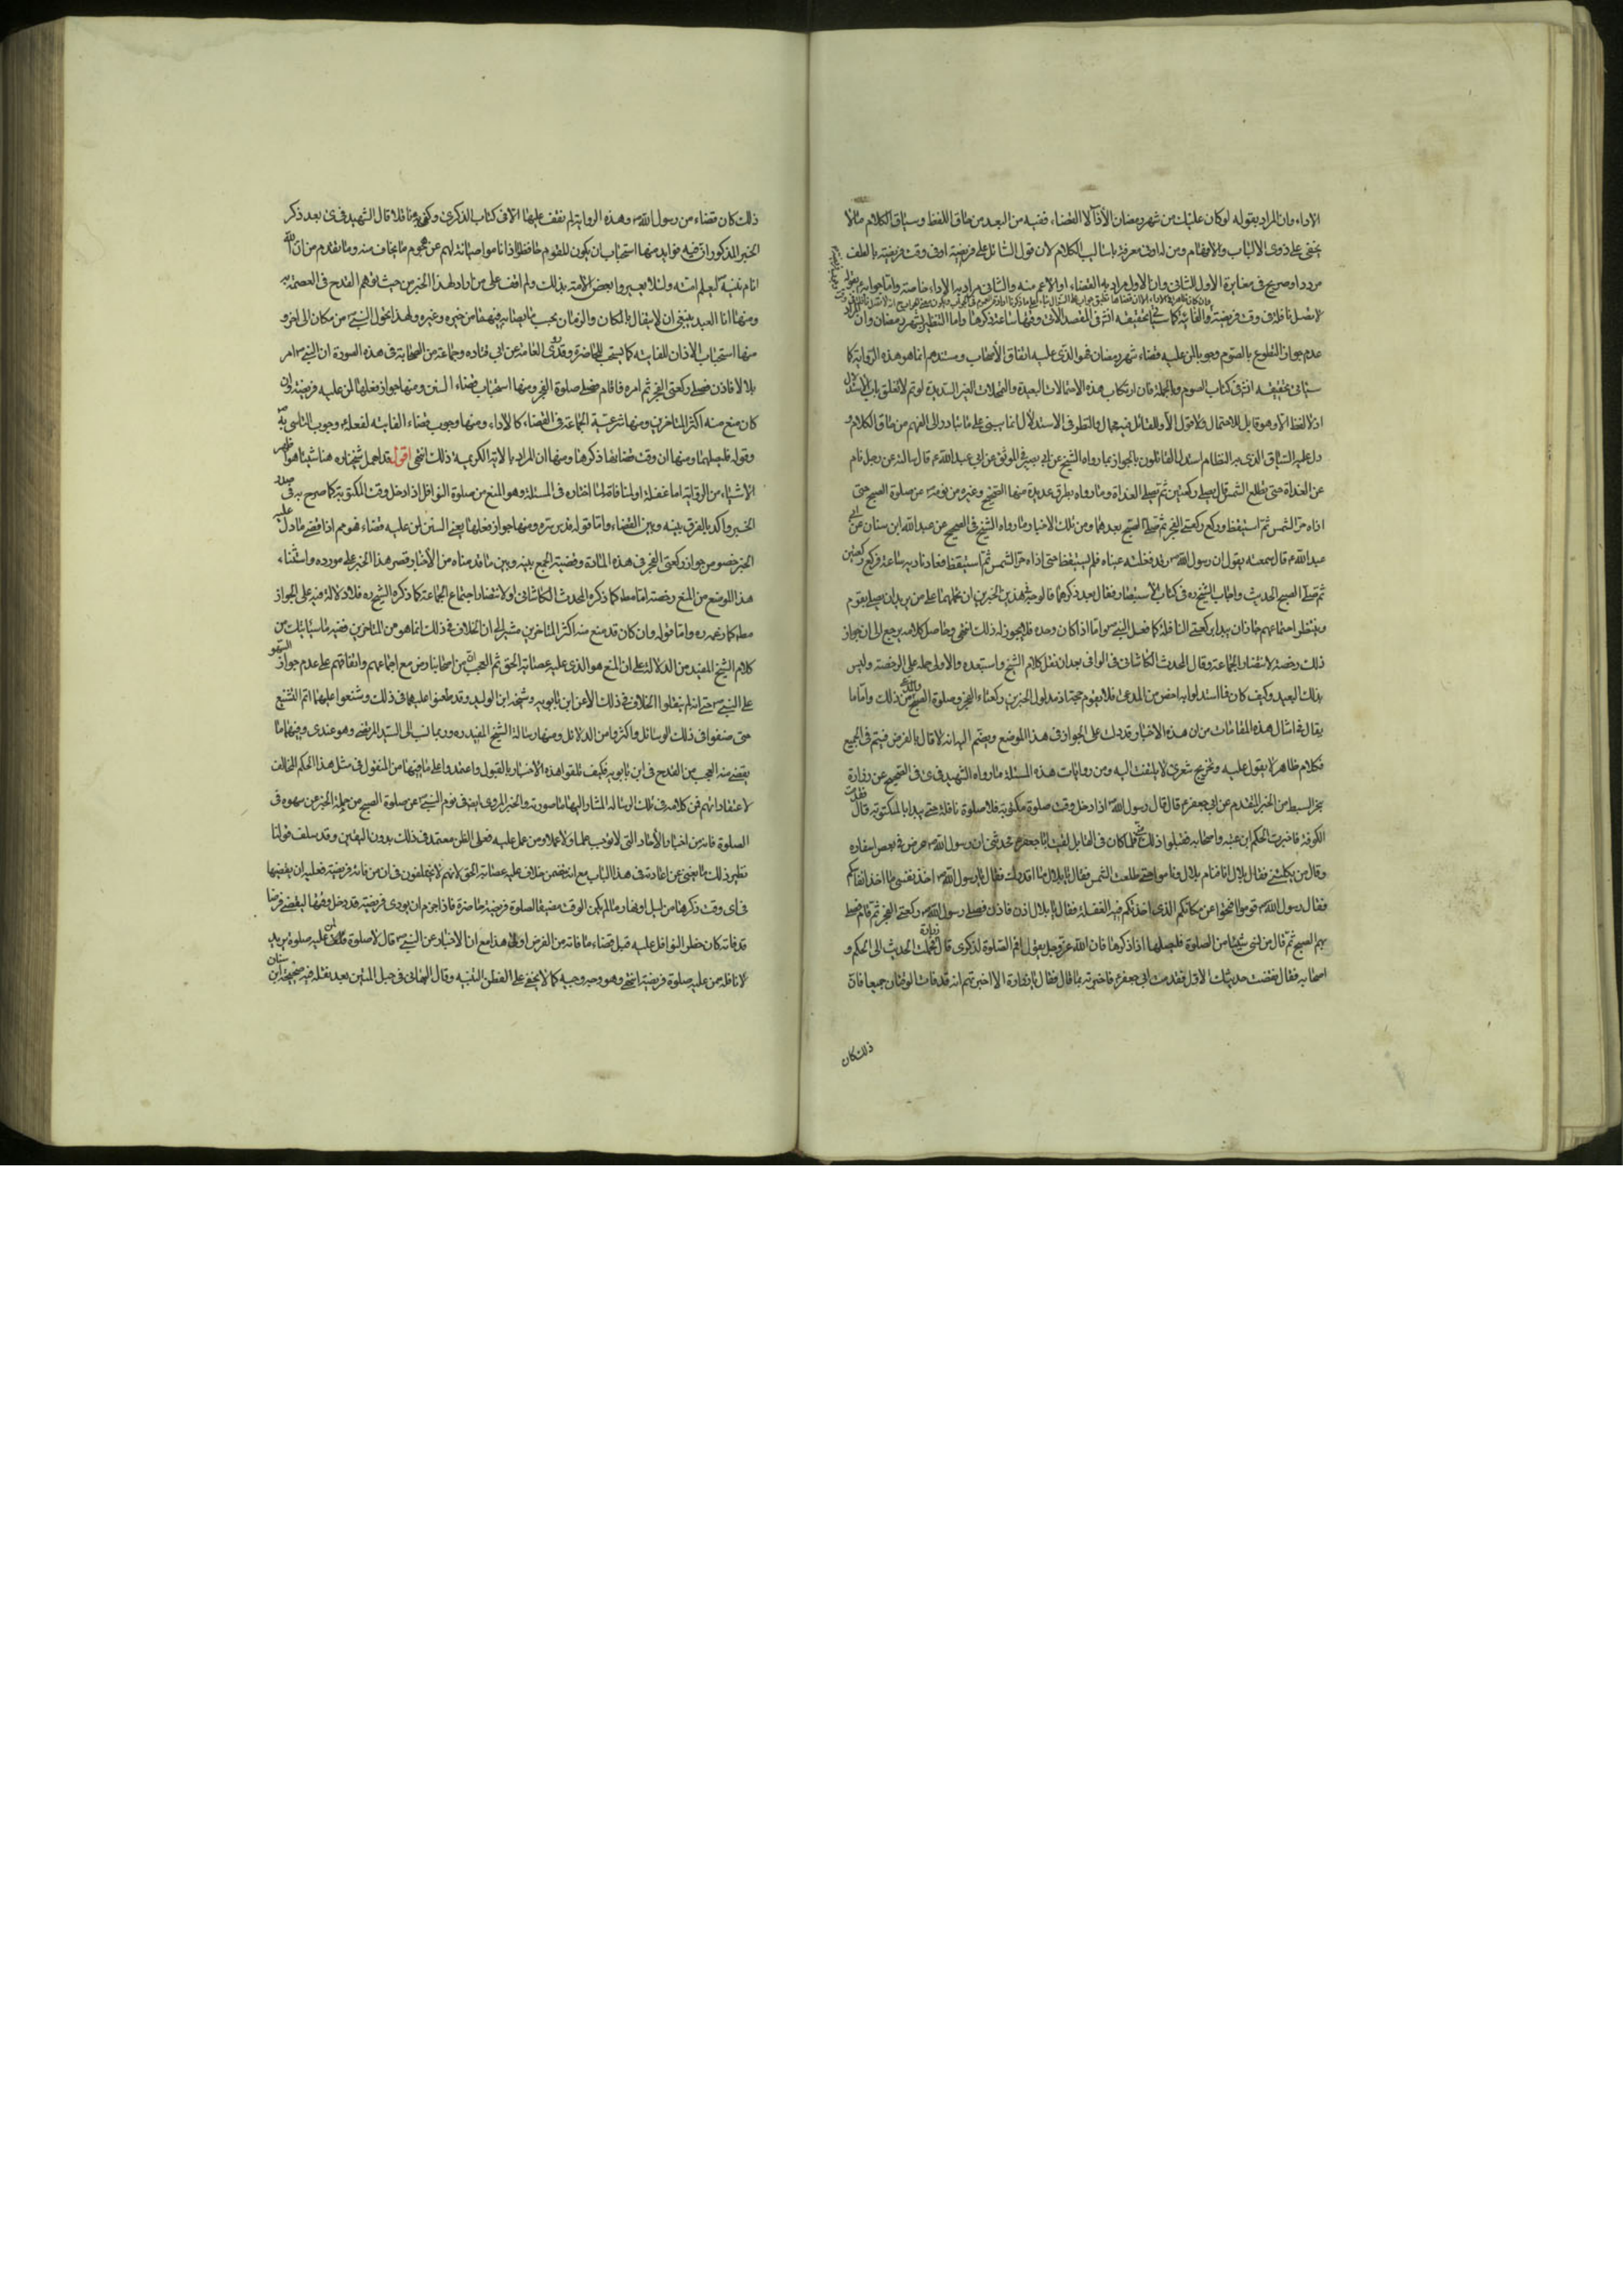 الاداء وان المراد بقوله لو كان عليك من شهر رمضان الاذآلا القضاء ففيه من البعد من مذاق اللفظ وسياق الكلام مالا
يخفى على ذوى الالباب والافهام ومن له ادنى معرفة باساليب الكلام لان قول السائل على فريضة اوفى وقت فريضة بالعطف
مردد او صريح فى مغايرة الاول الثانى وان الاول مراد به القضاء اوالاعم منه والثانى مراد به الاداء خاصة واما جوابه بقوله
لا تصل نافلة فى وقت فريضة والفائتة كما سيأتى تحقيقه انش فى المقصد الاتى وقتها ساعة ذكرها واما التنظير بشهر رمضان وان
عدم جواز التطوع بالصوم وجوبا لمن عليه قضاء شهر رمضان فهو الذى عليه اتفاق الأصحاب ومستندهم انما هو هذه الرواية كا
سيأتى تحقيقه انش فى كتاب الصوم وبالجملة فان ارتكاب هذه الاحتمالات البعيدة والتمحلات الغير السديدة لو تم لانغلق باب الاستدلال
اذ لا لفظ الا وهو قابل للاحتمال ولا قول الا وللقائل فيه مجال والنظر فى الاستدلال انما يبنى على ما يتبادر الى الفهم من مذاق الكلام و
دل عليه السياق الذى به النظام استدل القائلون بالجواز بما رواه الشيخ عن ابى بصير فى الموثق عن ابى عبد الله ع قال سالته عن رجل نام
عن الغداة حتى تطلع الشمس قال يصلى ركعتين ثم يصلى الغداة وما رواه بطرق عديدة منها الصحيح وغيره من نومه ص عن صلوة الصبح حتى
اذاه حر الشمس ثم استيقظ وركع ركعتى الفجر ثم صلى الصبح بعدهما ومن تلك الاخبار ما رواه الشيخ فى الصحيح عن عبد الله ابن سنان عن ابى
عبد الله ع قال سمعته يقول ان رسول الله ص رقد فغلبته عيناه فلم يستيقظ حتى اذاه حر الشمس ثم استيقظ فعاد ناديه ساعة فركع ركعتين
ثم صلى الصبح الحديث واجاب الشيخ ره فى كتاب الاستبصار فقال بعد ذكرهما فالوجه فى هذين الخبرين ان نحملهما على من يريد ان يصلى بقوم
وينتظر اجتماعهم جاز ان يبدا بركعتى النافلة كما فعل النبى ص واما اذا كان وحده فلا يجوز له ذلك انتهى وحاصل كلامه يرجع الى ان جواز
ذلك رخصة لانتظار الجماعة وقال المحدث الكاشانى فى الوافى بعد ان نقل كلام الشيخ واستبعده والاولى حمله على الرخصة وليس
بذلك البعيد وكيف كان فما استدلوا به اخص من المدعى فلا يقوم حجة اذ مدلول الخبرين ركعتاء الفجر وصلوة الصبح من ذلك واما ما
يقال فى امثال هذه المقامات من ان هذه الاخبار قد دلت على الجواز فى هذا الموضع ويضم اليها انه لا قائل بالفرق فيتم فى الجميع
فكلام ظاهرى لا يعول عليه وتخريج شعرى لا يلتفت اليه ومن روايات هذه المسئلة ما رواه الشهيد فى ى فى الصحيح عن زرارة
عن ابى جعفر ع قال قال رسول الله ص اذا دخل وقت صلوة مكتوبة فلا صلوة نافلة حتى يبدا بالمكتوبة قال فقدمت
الكوفة فاخبرت الحكم ابن عتيبة واصحابه فقبلوا ذلك منى فلما كان فى القابل لقيت ابا جعفر ع فحدثنى ان رسول الله ص عرس فى بعض اسفاره
وقال من يكلئنى فقال بلال انا فنام بلال وناموا حتى طلعت الشمس فقال يا بلال ما ارقدك فقال يا رسول الله ص اخذ بنفسى ما اخذ انفاسكم
فقال رسول الله ص قوموا فتحولوا عن مكانكم الذى اخذكم فيه الغفلة فقال يا بلال اذن فاذن فصلى رسول الله ص ركعتى الفجر ثم قام فصلى
بهم الصبح ثم قال من نسى شيئا من الصلوة فليصلها اذا ذكرها فان الله عز وجل يقول اقم الصلوة لذكرى قال زرارة فحملت الحديث الى الحكم و
اصحابه فقال نقضت حديثك الاول فقدمت على ابى جعفر ع فاخبرته بما قال فقال يا زرارة الا اخبرتهم انه قد فات الوقتان جميعا فان
ذلك كان
ذلك كان قضاء من رسول الله ص وهذه الرواية لم نقف عليها الا فى كتاب الذكرى وكفى به ناقلا قال الشهيد فى ى بعد ذكر
الخبر المذكور ان فيه فوايد منها استحباب ان يكون للقوم حافظ اذا ناموا صيانة لهم عن هجوم ما يخاف منه وما تقدم من ان الله
انام نبيه ص ليعلم امته ولئلا يعير وا بعض الامة بذلك ولم اقف على من راد لهذا الخبر من حيث توهم القدح فى العصمة به
ومنها ان العبد ينبغى ان لا يتفأل بالمكان والزمان بحسب ما يصيبه فيهما من خير وغيره ولهذا تحول النبى ص من مكان الى اخر و
منها استحباب الاذان للفائتة كما يستحب للحاضرة وقد روى العامة عن ابى قتاده وجماعة من الصحابة فى هذه الصورة ان النبى ص امر
بلالا فاذن فصلى ركعتى الفجر ثم امره فاقام فصلى صلوة الفجر ومنها استحباب قضاء السنن ومنها جواز فعلها لمن عليه فريضة وان
كان منع منه اكثر المتاخرين ومنها شرعية الجماعة فى القضاء كالاداء ومنها وجوب قضاء الفايتة لفعله ص ووجوب التاسى به
وقوله فليصلها ومنها ان وقت قضائها ذكرها ومنها ان المراد بالاية الكريمة ذلك انتهى اقول قد اهمل شيخنا ره هنا شيئا هو اظهر
الاشياء من الرواية اما غفلة او لمنافاته لما اختاره فى المسئلة وهو المنع من صلوة النوافل اذا دخل وقت المكتوبة كما صرح به فى صدر
الخبر واكد بالفرق بينه وبين القضاء واما قوله قدس سره ومنها جواز فعلها يعنى السنن لمن عليه قضاء فهو مم اذا قضى ما دل عليه
الخبر خصوص جواز ركعتى الفجر فى هذه المادة وقضية الجمع بينه وبين ما قدمناه من الأخبار قصر هذا الخبر على مورده واستثناء
هذا الموضع من المنع رخصة اما مط كما ذكره المحدث الكاشانى او لانتظار اجتماع الجماعة كما ذكره الشيخ ره فلا دلالة فيه على الجواز
مط كما زعمه ره واما قوله وان كان قد منع منه اكثر المتاخرين مشيرا الى ان الخلاف فى ذلك انما هو من المتاخرين ففيه ما سيأتيك من
كلام الشيخ المفيد من الدلالة على ان المنع هو الذى عليه عصابة الحق ثم العجب ان من اصحابنا رض مع اجماعهم واتفاقهم على عدم جواز السهو
على النبى ص حتى انه لم ينقلوا الخلاف فى ذلك الا عن ابن بابويه وشيخه ابن الوليد وقد طعنوا عليهما فى ذلك وشنعوا عليهما اتم التشنيع
حتى صنفوا فى ذلك الرسائل واكثروا من الدلائل ومنها رسالة الشيخ المفيد ره وربما نسب الى السيد المرتضى وهو عندى وفيها ما
يقضى منه العجب من القدح فى ابن بابويه فكيف تلقوا هذه الاخبار بالقبول واعتمدوا على ما فيها من المنقول فى مثل هذا الحكم المخالف
لاعتقاداتهم فمن كلامه فى تلك الرسالة المشار اليها ما صورته والخبر المروى ايضا فى نوم النبى ص عن صلوة الصبح من جملة الخبر عن سهوه فى
الصلوة فانه من اخبار الأحاد التى لا توجب علما ولا عملا ومن عمل عليه فعلى الظن معتمد فى ذلك بدون اليقين وقد سلف قولنا
نظير ذلك ما يغنى عن اعادته فى هذا الباب مع انه يتضمن خلاف عليه عصابة الحق لانهم لا يختلفون فى ان من فاته فريضة فعليه ان يقضيها
فى اى وقت ذكرها من ليل او نهار ما لم يكن الوقت مضيقا لصلوة فريضة حاضرة فاذا حرم ان يودى فريضة قد دخل وقتها ليقضى فرضا
قد فاته كان حظر النوافل عليه قبل قضاء ما فاته من الفرض اولى هذا مع ان الاخبار عن النبى ص قال لا صلوة لمن عليه صلوة يريد
لا نافلة لمن عليه صلوة فريضة انتهى وهو وجيه وجيه كما لا يخفى على الفطن النبيه وقال البهائى فى حبل المتين بعد نقله فيه صحيحة ابن سنان